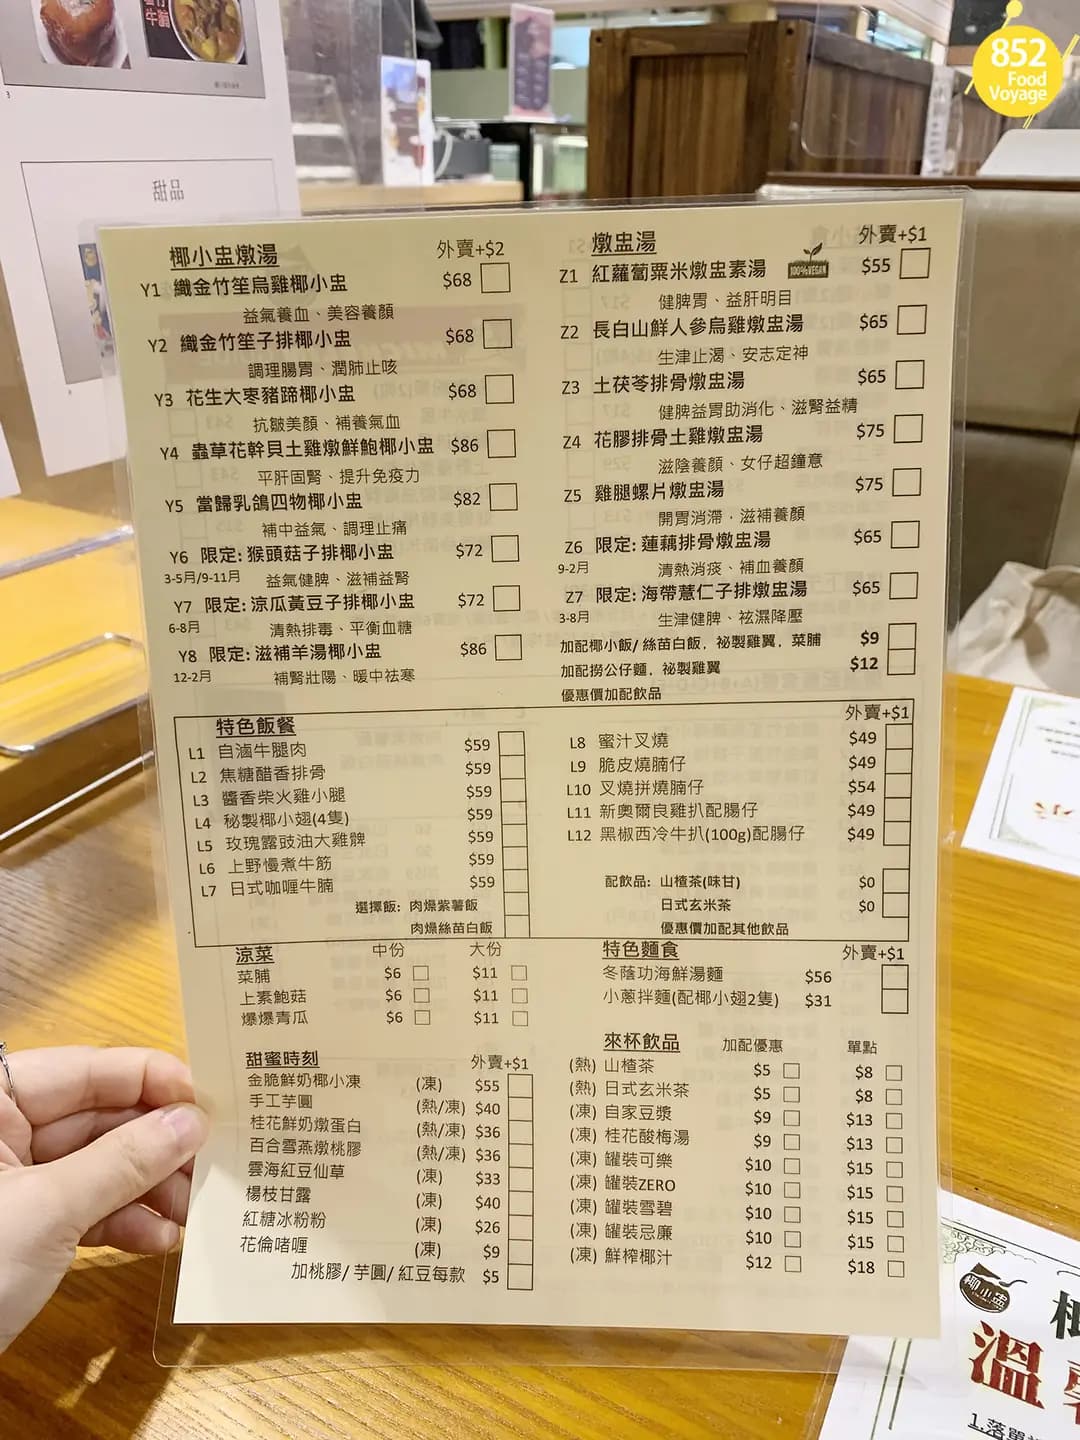 852
Food
Voyage
甜品
椰小盅燉湯 外賣+$2
Y1 織金竹笙烏雞椰小盅 $68
益氣養血、美容養顏
Y2 織金竹笙子排椰小盅 $68
調理腸胃、潤肺止咳
Y3 花生大枣豬蹄椰小盅 $68
抗皺美顏、補養氣血
Y4 蟲草花幹貝土雞燉鮮鮑椰小盅 $86
平肝固腎、提升免疫力
Y5 當歸乳鴿四物椰小盅 $82
補中益氣、調理止痛
Y6 限定:猴頭菇子排椰小盅 $72
3-5月/9-11月 益氣健脾、滋補益腎
Y7 限定:涼瓜黃豆子排椰小盅 $72
6-8月 清熱排毒、平衡血糖
Y8 限定:滋補羊湯椰小盅 $86
12-2月 補腎壯陽、暖中祛寒
燉盅湯 外賣+$1
Z1 紅蘿蔔粟米燉盅素湯 100%VEGAN $55
健脾胃、益肝明目
Z2 長白山鮮人參烏雞燉盅湯 $65
生津止渴、安志定神
Z3 土茯苓排骨燉盅湯 $65
健脾益胃助消化、滋腎益精
Z4 花膠排骨土雞燉盅湯 $75
滋陰養顏、女仔超鐘意
Z5 雞腿螺片燉盅湯 $75
開胃消滯﹑滋補養顏
Z6 限定:蓮藕排骨燉盅湯 $65
9-2月 清熱消痰、補血養顏
Z7 限定:海帶薏仁子排燉盅湯 $65
3-8月 生津健脾、祛濕降壓
加配椰小飯/絲苗白飯，祕製雞翼，菜脯 $9
加配撈公仔麵，祕製雞翼 $12
優惠價加配飲品
特色飯餐 外賣+$1
L1 自滷牛腿肉 $59
L2 焦糖醋香排骨 $59
L3 醬香柴火雞小腿 $59
L4 秘製椰小翅(4隻) $59
L5 玫瑰露豉油大雞髀 $59
L6 上野慢煮牛筋 $59
L7 日式咖喱牛腩 $59
選擇飯: 肉燥紫薯飯
肉燥絲苗白飯
L8 蜜汁叉燒 $49
L9 脆皮燒腩仔 $49
L10 叉燒拼燒腩仔 $54
L11 新奧爾良雞扒配腸仔 $49
L12 黑椒西冷牛扒(100g)配腸仔 $49
配飲品: 山楂茶(味甘) $0
日式玄米茶 $0
優惠價加配其他飲品
涼菜 中份 大份
菜脯 $6 $11
上素鮑菇 $6 $11
爆爆青瓜 $6 $11
特色麵食 外賣+$1
冬蔭功海鮮湯麵 $56
小蔥拌麵(配椰小翅2隻) $31
甜蜜時刻 外賣+$1
金脆鮮奶椰小凍 (凍) $55
手工芋圓 (熱/凍) $40
桂花鮮奶燉蛋白 (熱/凍) $36
百合雪燕燉桃膠 (熱/凍) $36
雲海紅豆仙草 (凍) $33
楊枝甘露 (凍) $40
紅糖冰粉粉 (凍) $26
花倫啫喱 (凍) $9
加桃膠/芋圓/紅豆每款 $5
來杯飲品 加配優惠 單點
(熱) 山楂茶 $5 $8
(熱) 日式玄米茶 $5 $8
(凍) 自家豆漿 $9 $13
(凍) 桂花酸梅湯 $9 $13
(凍) 罐裝可樂 $10 $15
(凍) 罐裝ZERO $10 $15
(凍) 罐裝雪碧 $10 $15
(凍) 罐裝忌廉 $10 $15
(凍) 鮮榨椰汁 $12 $18
椰小盅
溫
1.落單